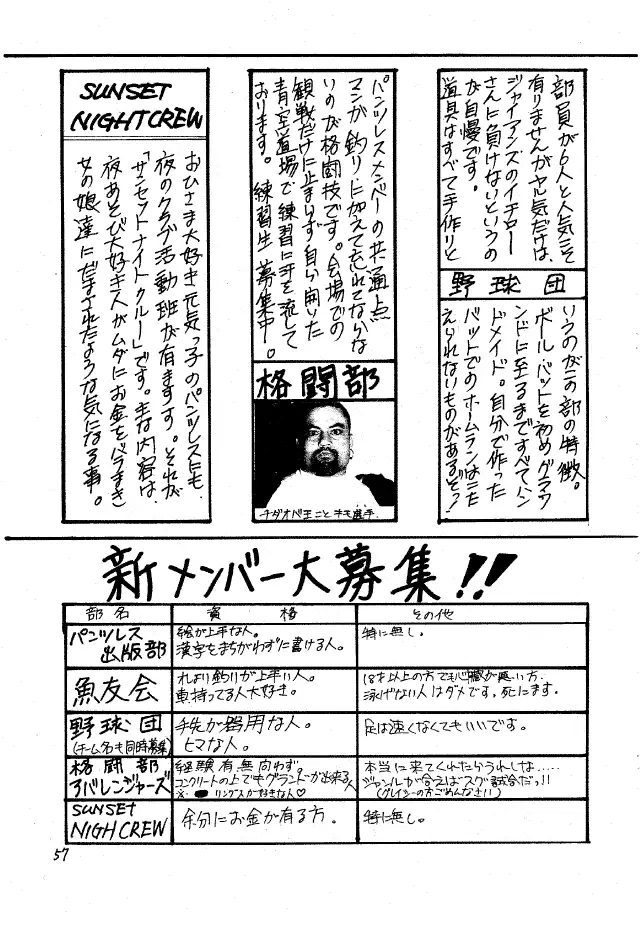 部員が6人と人気こそ
有りませんがヤル気だけは、
ジャイアンズのイチロー
さんに負けないというの
が自慢です。
道具はすべて手作りと
野球団
いうのがこの部の特徴。
ボール、バットを初めグラウ
ンドに至るまですべてハン
ドメイド。自分で作った
バットでのホームランはこた
えられないものがあるぞっ!
パンツレスメンバーの共通点
マンが、釣りに加えて忘れてならな
いのが格闘技です。会場での
観戦だけに止まらず自ら開いた
青空道場で練習に汗を流して
おります。練習生募集中。
格闘部
チダオベ王こと千毛選手.
SUNSET
NIGHTCREW
おひさま大好き元気っ子のパンツレスにも、
夜のクラブ活動班が有ります。それが
「サンセットナイトクルー」です。主な内容は、
夜あそび大好き人がムダにお金をバラまき
女の娘達にだまされたような気になる事。
新メンバー大募集!!
部名 資格 その他
パンツレス出版部 絵が上手な人。漢字をまちがわずに書ける人。 特に無し。
魚友会 れより釣りが上手い人。車持ってる人大好き。 18才以上の方でも心臓が悪い方、泳げない人はダメです。死にます。
野球団(チーム名も同時募集) 手先が器用な人。ヒマな人。 足は速くなくてもいいです。
格闘部アバレンジャーズ 経験有、無問わず。コンクリートの上でもグランドが出来る人 リングスが好きな人♡ 本当に来てくれたらうれしな.....ジャンルが合えばスグ試合だっ!!(グレイシーの方ごめんなさい)
SUNSET NIGHCREW 余分にお金が有る方。 特に無し。
57